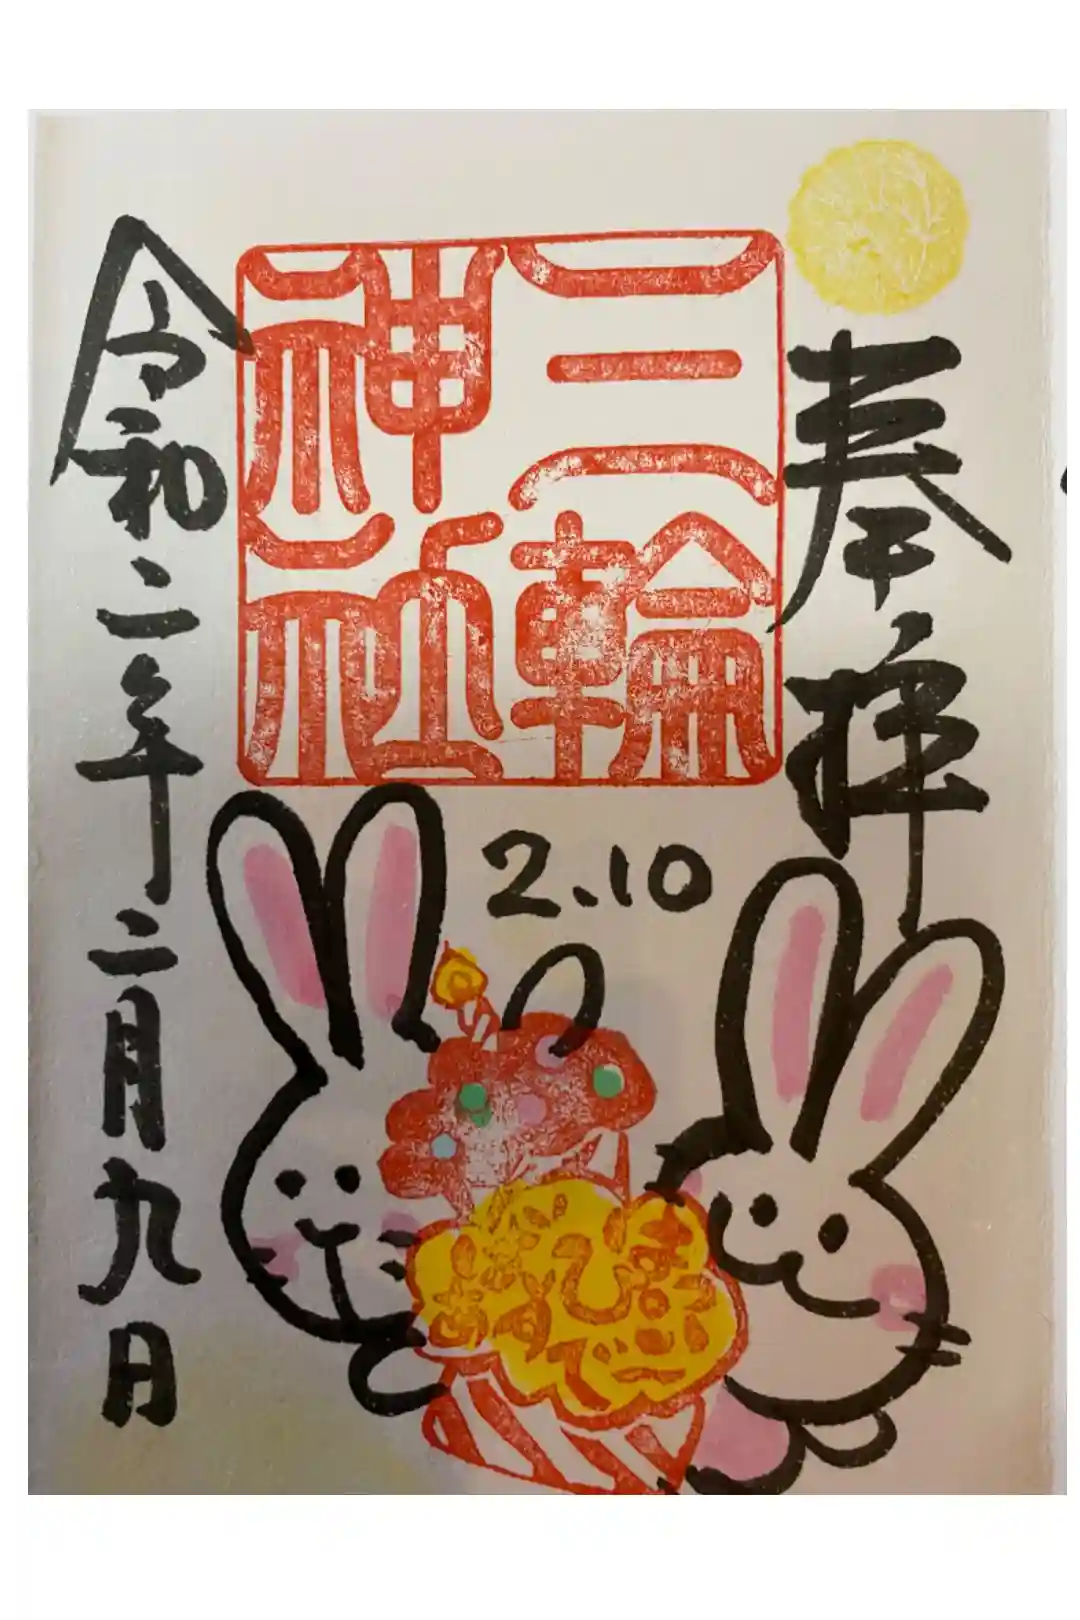 奉拝
三輪
神社
令和二年二月九日
2.10